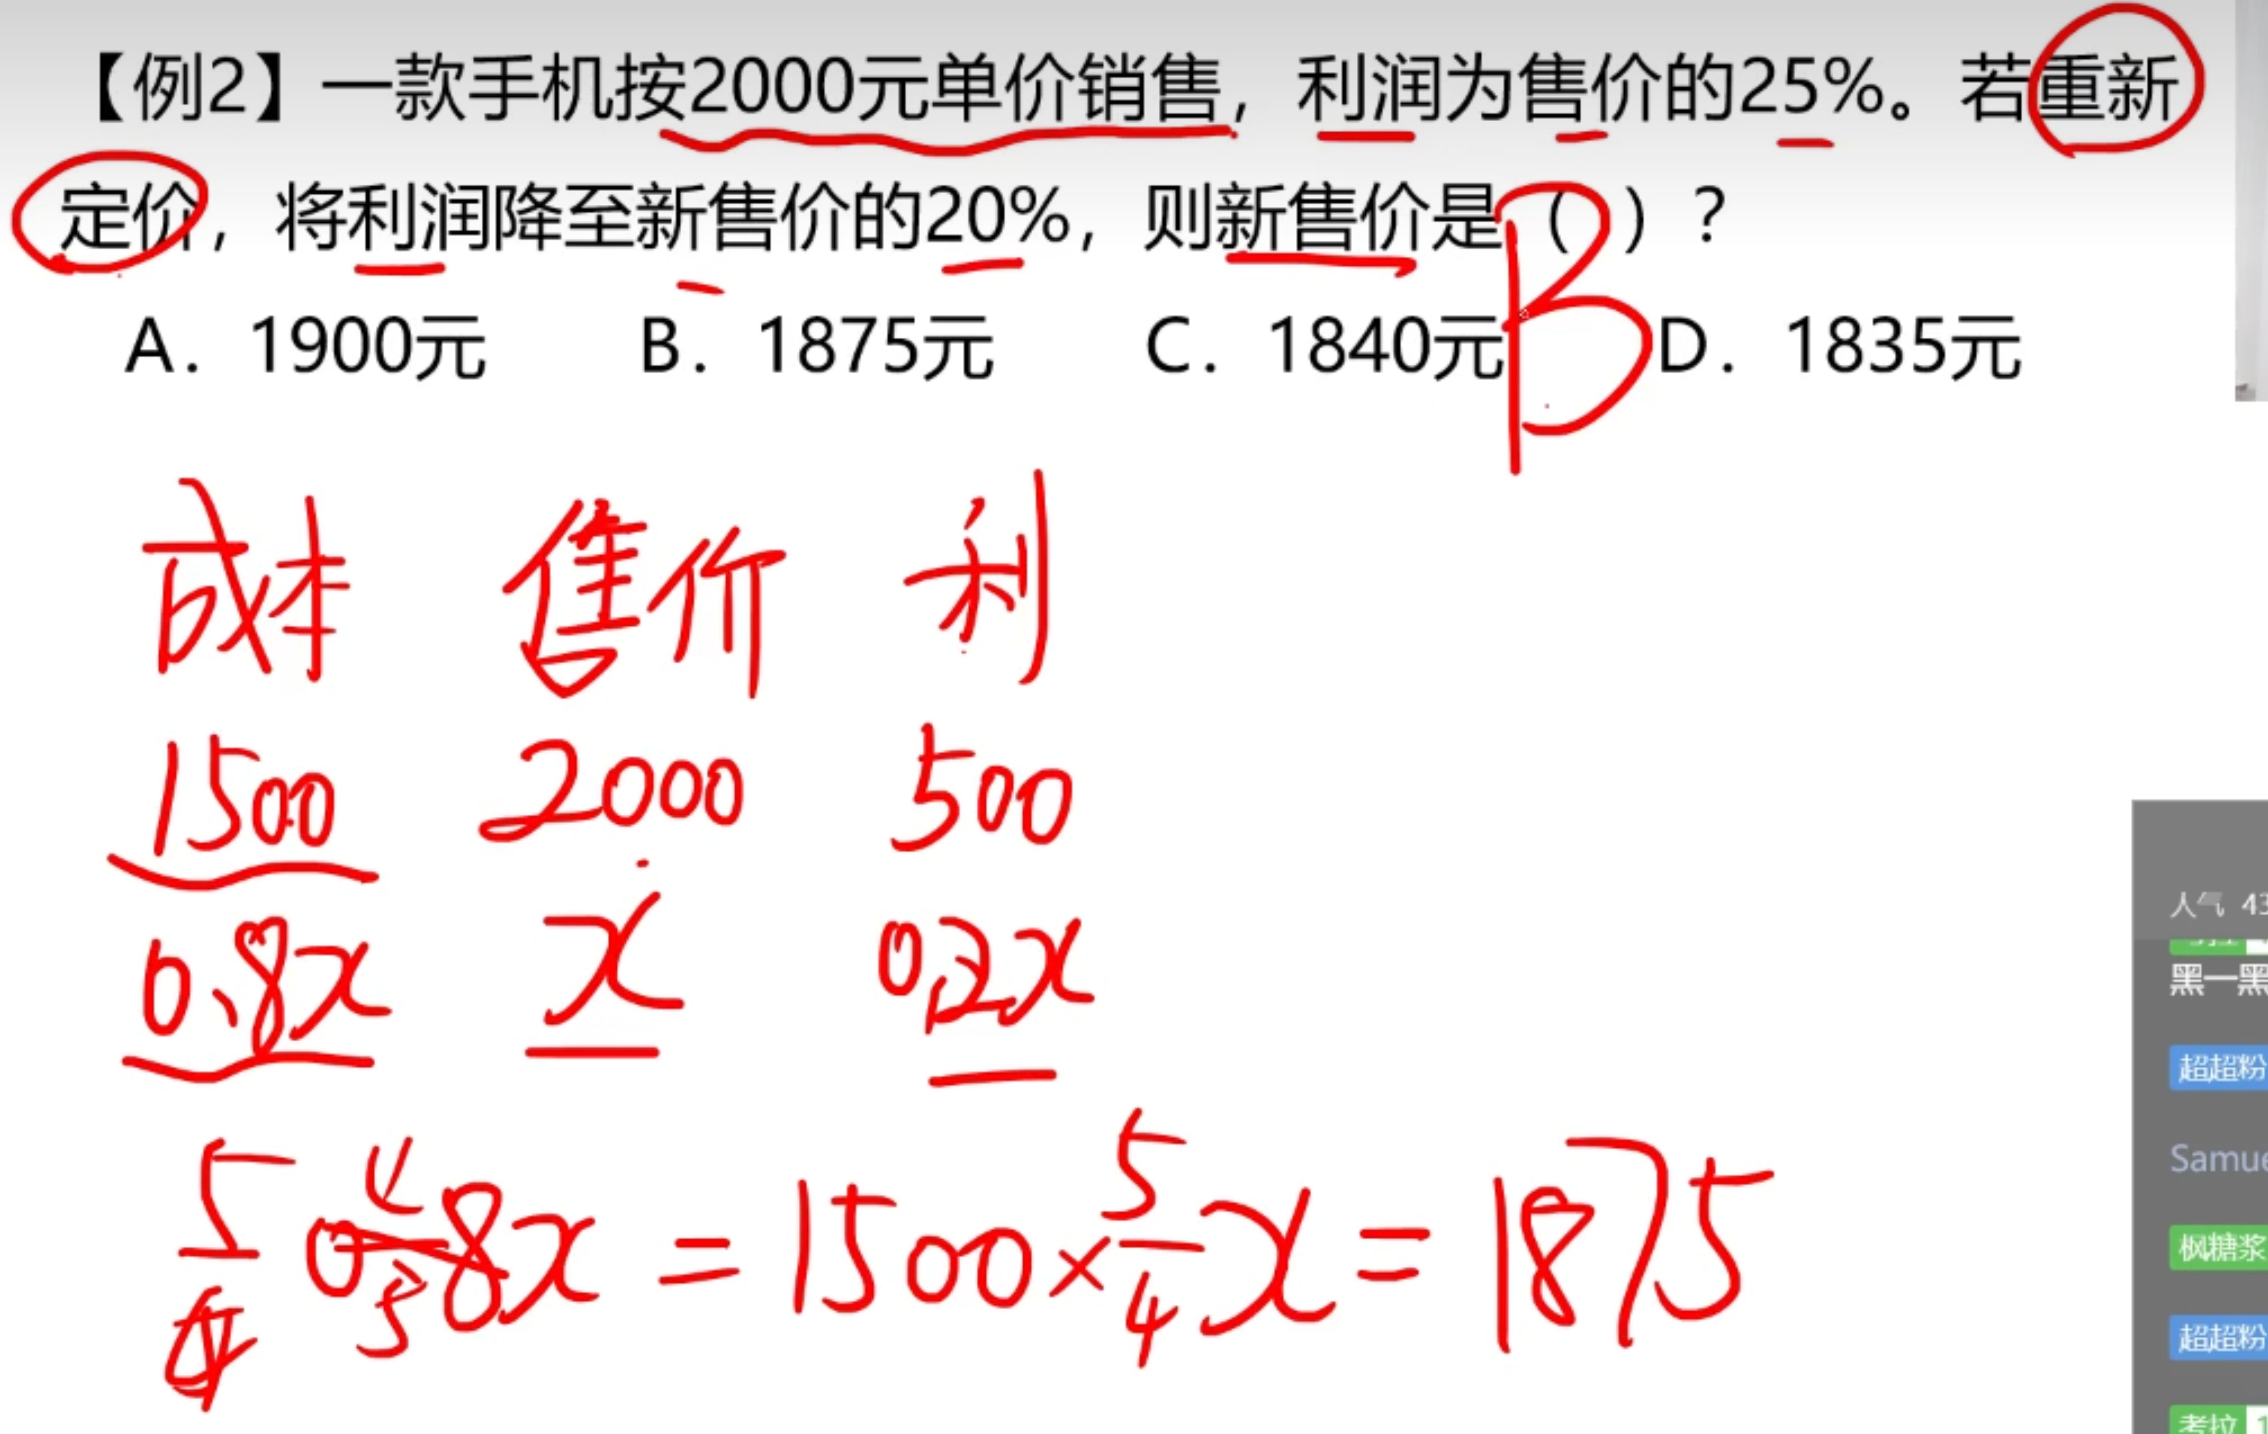 【例2】一款手机按2000元单价销售，利润为售价的25%。若重新
定价，将利润降至新售价的20%，则新售价是（ ）？
B
A．1900元 B．1875元 C．1840元 D．1835元
成本 售价 利
1500 2000 500
0.8x x 0.2x
5/4 0.8x 4/5 = 1500×5/4 x = 1875
人气 43
黑一黑
超超粉
Samue
枫糖浆
超超粉
考拉 1